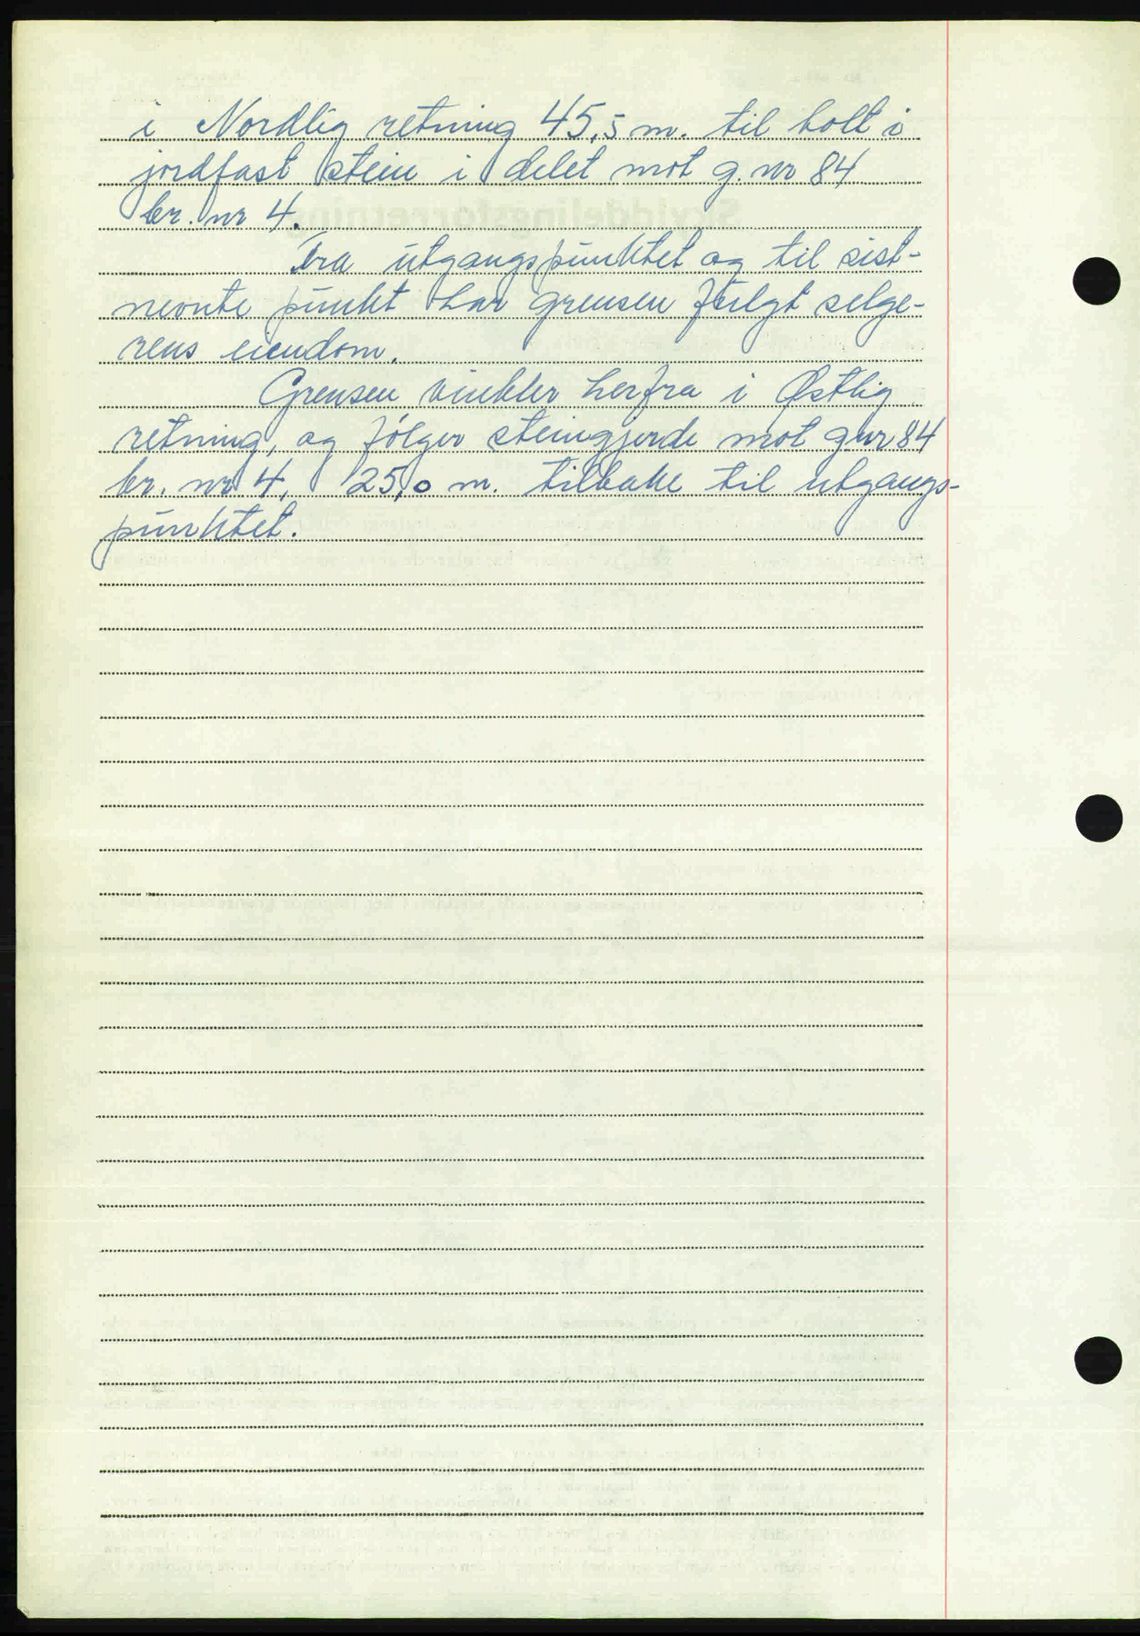 i Nordlig retning 45,5 m. til bolt i
jordfast stein i delet mot g. nr 84
br. nr 4.
Fra utgangspunktet og til sist-
nevnte punkt har grensen fulgt selge-
rens eiendom.
Grensen vinkler herfra i Østlig
retning, og følger steingjerde mot g.nr 84
br. nr 4, 25,0 m. tilbake til utgangs-
punktet.